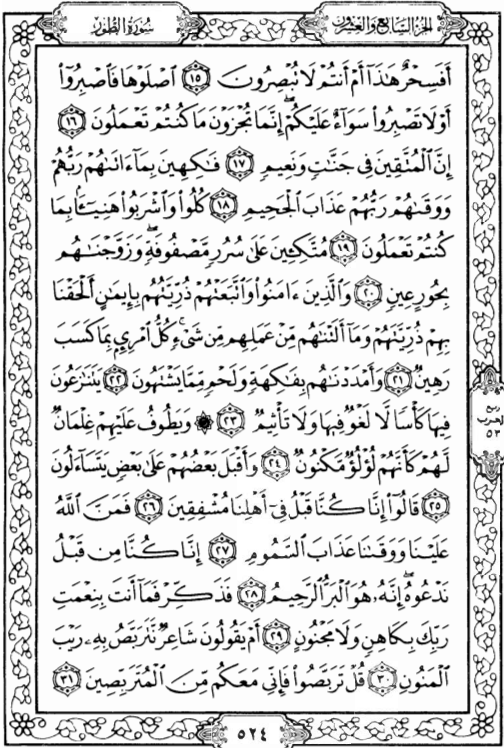 سورة الطور
الجزء السابع والعشرون
أَفَسِحْرٌ هَٰذَا أَمْ أَنتُمْ لَا تُبْصِرُونَ ١٥ ٱصْلَوْهَا فَٱصْبِرُوٓا۟
أَوْ لَا تَصْبِرُوا۟ سَوَآءٌ عَلَيْكُمْ ۖ إِنَّمَا تُجْزَوْنَ مَا كُنتُمْ تَعْمَلُونَ ١٦
إِنَّ ٱلْمُتَّقِينَ فِى جَنَّٰتٍ وَنَعِيمٍ ١٧ فَٰكِهِينَ بِمَآ ءَاتَىٰهُمْ رَبُّهُمْ
وَوَقَىٰهُمْ رَبُّهُمْ عَذَابَ ٱلْجَحِيمِ ١٨ كُلُوا۟ وَٱشْرَبُوا۟ هَنِيٓـًٔۢا بِمَا
كُنتُمْ تَعْمَلُونَ ١٩ مُتَّكِـِٔينَ عَلَىٰ سُرُرٍ مَّصْفُوفَةٍ ۖ وَزَوَّجْنَٰهُم
بِحُورٍ عِينٍ ٢٠ وَٱلَّذِينَ ءَامَنُوا۟ وَٱتَّبَعَتْهُمْ ذُرِّيَّتُهُم بِإِيمَٰنٍ أَلْحَقْنَا
بِهِمْ ذُرِّيَّتَهُمْ وَمَآ أَلَتْنَٰهُم مِّنْ عَمَلِهِم مِّن شَىْءٍ ۚ كُلُّ ٱمْرِئٍۭ بِمَا كَسَبَ
رَهِينٌ ٢١ وَأَمْدَدْنَٰهُم بِفَٰكِهَةٍ وَلَحْمٍ مِّمَّا يَشْتَهُونَ ٢٢ يَتَنَٰزَعُونَ
فِيهَا كَأْسًا لَّا لَغْوٌ فِيهَا وَلَا تَأْثِيمٌ ٢٣ ۞ وَيَطُوفُ عَلَيْهِمْ غِلْمَانٌ
لَّهُمْ كَأَنَّهُمْ لُؤْلُؤٌ مَّكْنُونٌ ٢٤ وَأَقْبَلَ بَعْضُهُمْ عَلَىٰ بَعْضٍ يَتَسَآءَلُونَ
٢٥ قَالُوٓا۟ إِنَّا كُنَّا قَبْلُ فِىٓ أَهْلِنَا مُشْفِقِينَ ٢٦ فَمَنَّ ٱللَّهُ
عَلَيْنَا وَوَقَىٰنَا عَذَابَ ٱلسَّمُومِ ٢٧ إِنَّا كُنَّا مِن قَبْلُ
نَدْعُوهُ ۖ إِنَّهُۥ هُوَ ٱلْبَرُّ ٱلرَّحِيمُ ٢٨ فَذَكِّرْ فَمَآ أَنتَ بِنِعْمَتِ
رَبِّكَ بِكَاهِنٍ وَلَا مَجْنُونٍ ٢٩ أَمْ يَقُولُونَ شَاعِرٌ نَّتَرَبَّصُ بِهِۦ رَيْبَ
ٱلْمَنُونِ ٣٠ قُلْ تَرَبَّصُوا۟ فَإِنِّى مَعَكُم مِّنَ ٱلْمُتَرَبِّصِينَ ٣١
ربع
الحزب
٥٣
٥٢٤